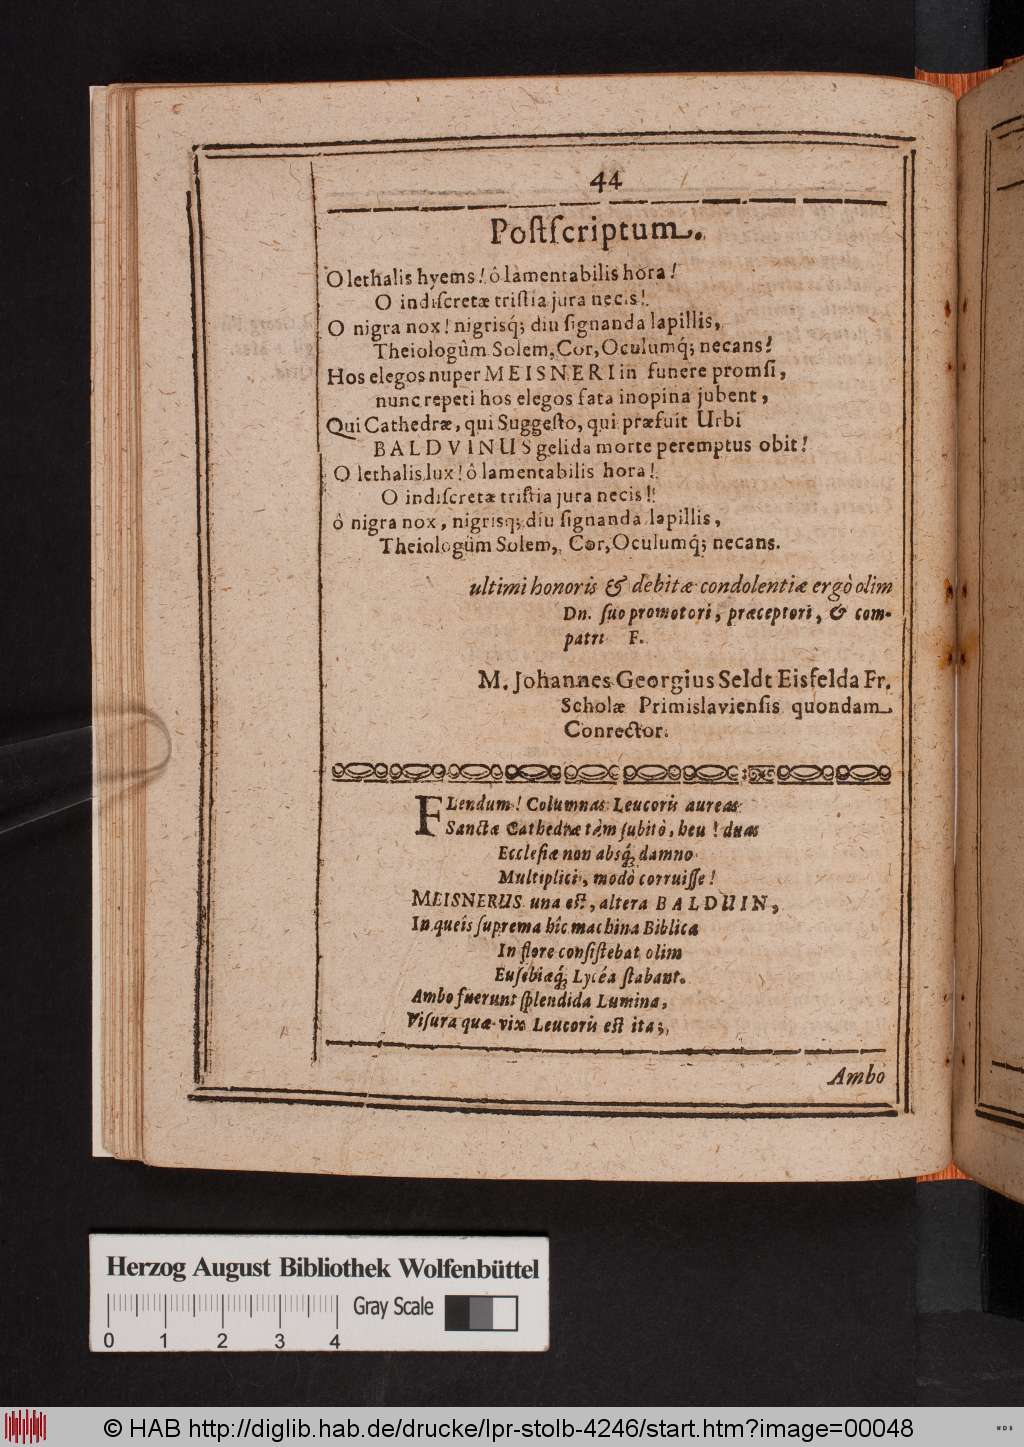 44
Poſtſcriptum.
O lethalis hyems! ô lamentabilis hora!
O indiſcretæ triſtia jura necis!
O nigra nox! nigrisq́; diu ſignanda lapillis,
Theiologûm Solem, Cor, Oculumq́; necans!
Hos elegos nuper MEISNERI in funere promſi,
nunc repeti hos elegos fata inopina jubent,
Qui Cathedræ, qui Suggeſto, qui præfuit Urbi
BALDVINUS gelida morte peremptus obit!
O lethalis lux! ô lamentabilis hora!
O indiſcretæ triſtia jura necis!
ô nigra nox, nigrisq; diu ſignanda lapillis,
Theiologûm Solem, Cor, Oculumq́; necans.
ultimi honoris & debitæ condolentiæ ergò olim
Dn. ſuo promotori, præceptori, & com-
patri F.
M. Johannes Georgius Seldt Eisfelda Fr.
Scholæ Primislavienſis quondam
Conrector.
FLendum! Columnas Leucoris aureas
Sanctæ Cathedræ tàm ſubitò, heu! duas
Eccleſiæ non absq́; damno
Multiplici, modò corruiſſe!
MEISNERUS una eſt, altera BALDUIN,
In queîs ſuprema hîc machina Biblica
In flore conſiſtebat olim
Euſebiæq́; Lycéa ſtabant.
Ambo fuerunt ſplendida Lumina,
Viſura quæ vix Leucoris eſt ita;
Ambo
Herzog August Bibliothek Wolfenbüttel
0 1 2 3 4
Gray Scale
© HAB http://diglib.hab.de/drucke/lpr-stolb-4246/start.htm?image=00048